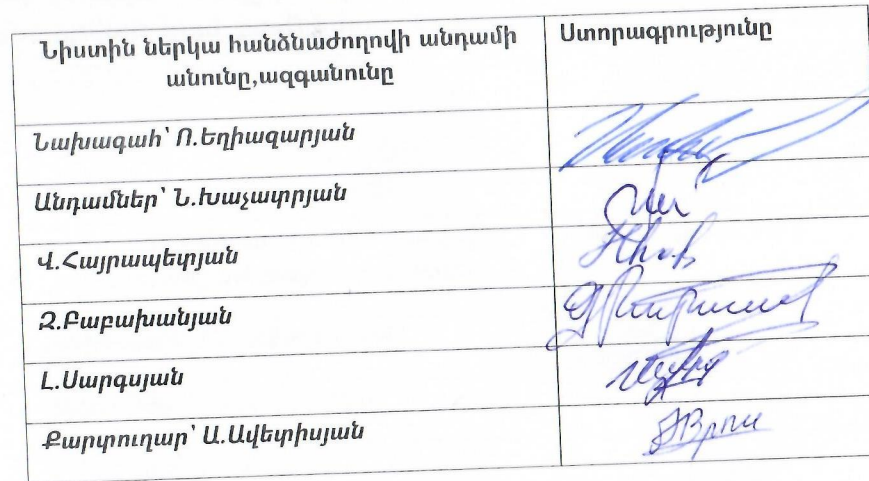 Նիստին ներկա հանձնաժողովի անդամի
անունը,ազգանունը
Ստորագրությունը
Նախագահ՝ Ո.Եղիազարյան
Անդամներ՝ Ն.Խաչատրյան
Վ.Հայրապետյան
Զ.Բաբախանյան
Լ.Սարգսյան
Քարտուղար՝ Ա.Ավետիսյան